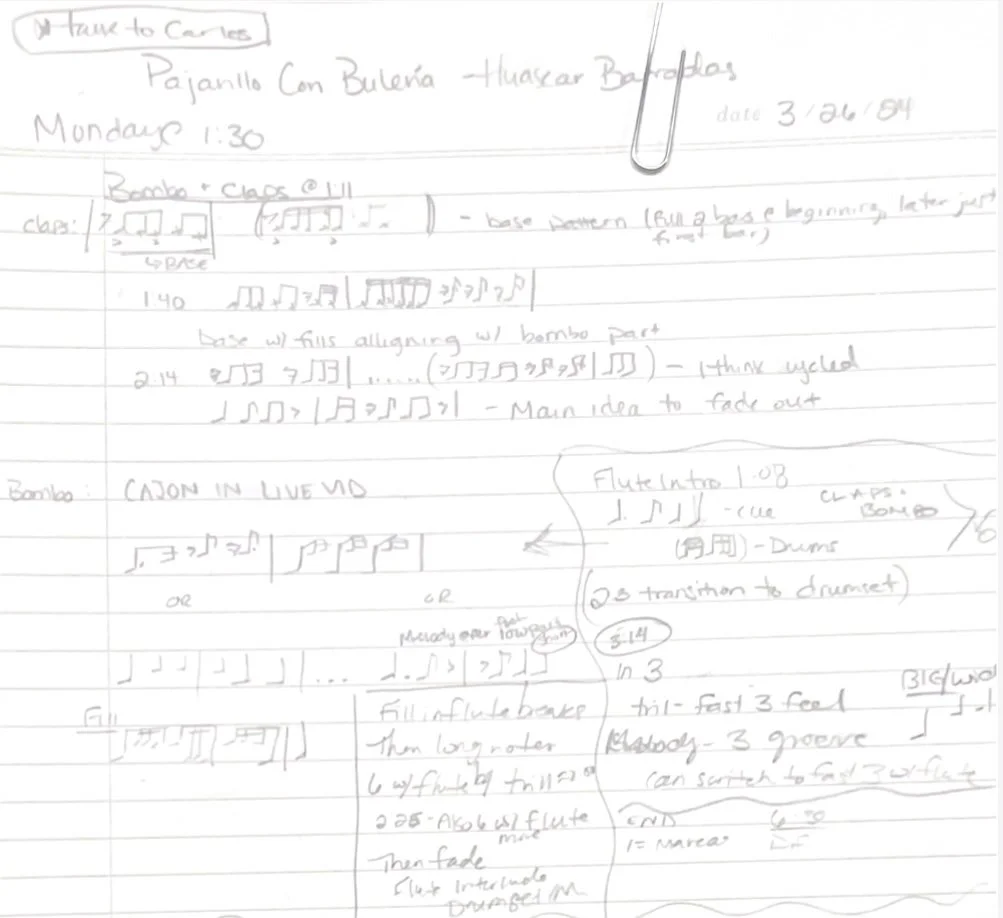 * Talk to Carlos
Pajarillo Con Bulería - Huascar Barradas
date 3/26/04
Mondays 1:30
Bombo + Claps @ 1:11
claps:
- base pattern (Full 2 bas @ beginning, later just first bar)
↳ BASE
1.40
base w/ fills alligning w/ bombo part
2.14 ...... - I think cycled
- Main idea to fade out
Bombo: CAJON IN LIVE VID
OR
OR
Melody over
...
Fill
Fill in flute breaks
Then long notes
6 w/ flute trill
2 25 - Also 6 w/ flute
more
Then fade
Flute Interlude
Drumset in
Flute Intro 1.08
- cue
CLAPS + BOMBO
6
- Drums
(23 transition to drumset)
3.14
In 3
tril - fast 3 feel
BIG/WID
Melody - 3 groove
can switch to fast 3 w/ flute
END